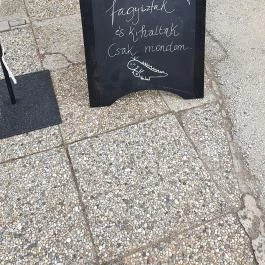 fagyiztak
és kihaltak
Csak mondom